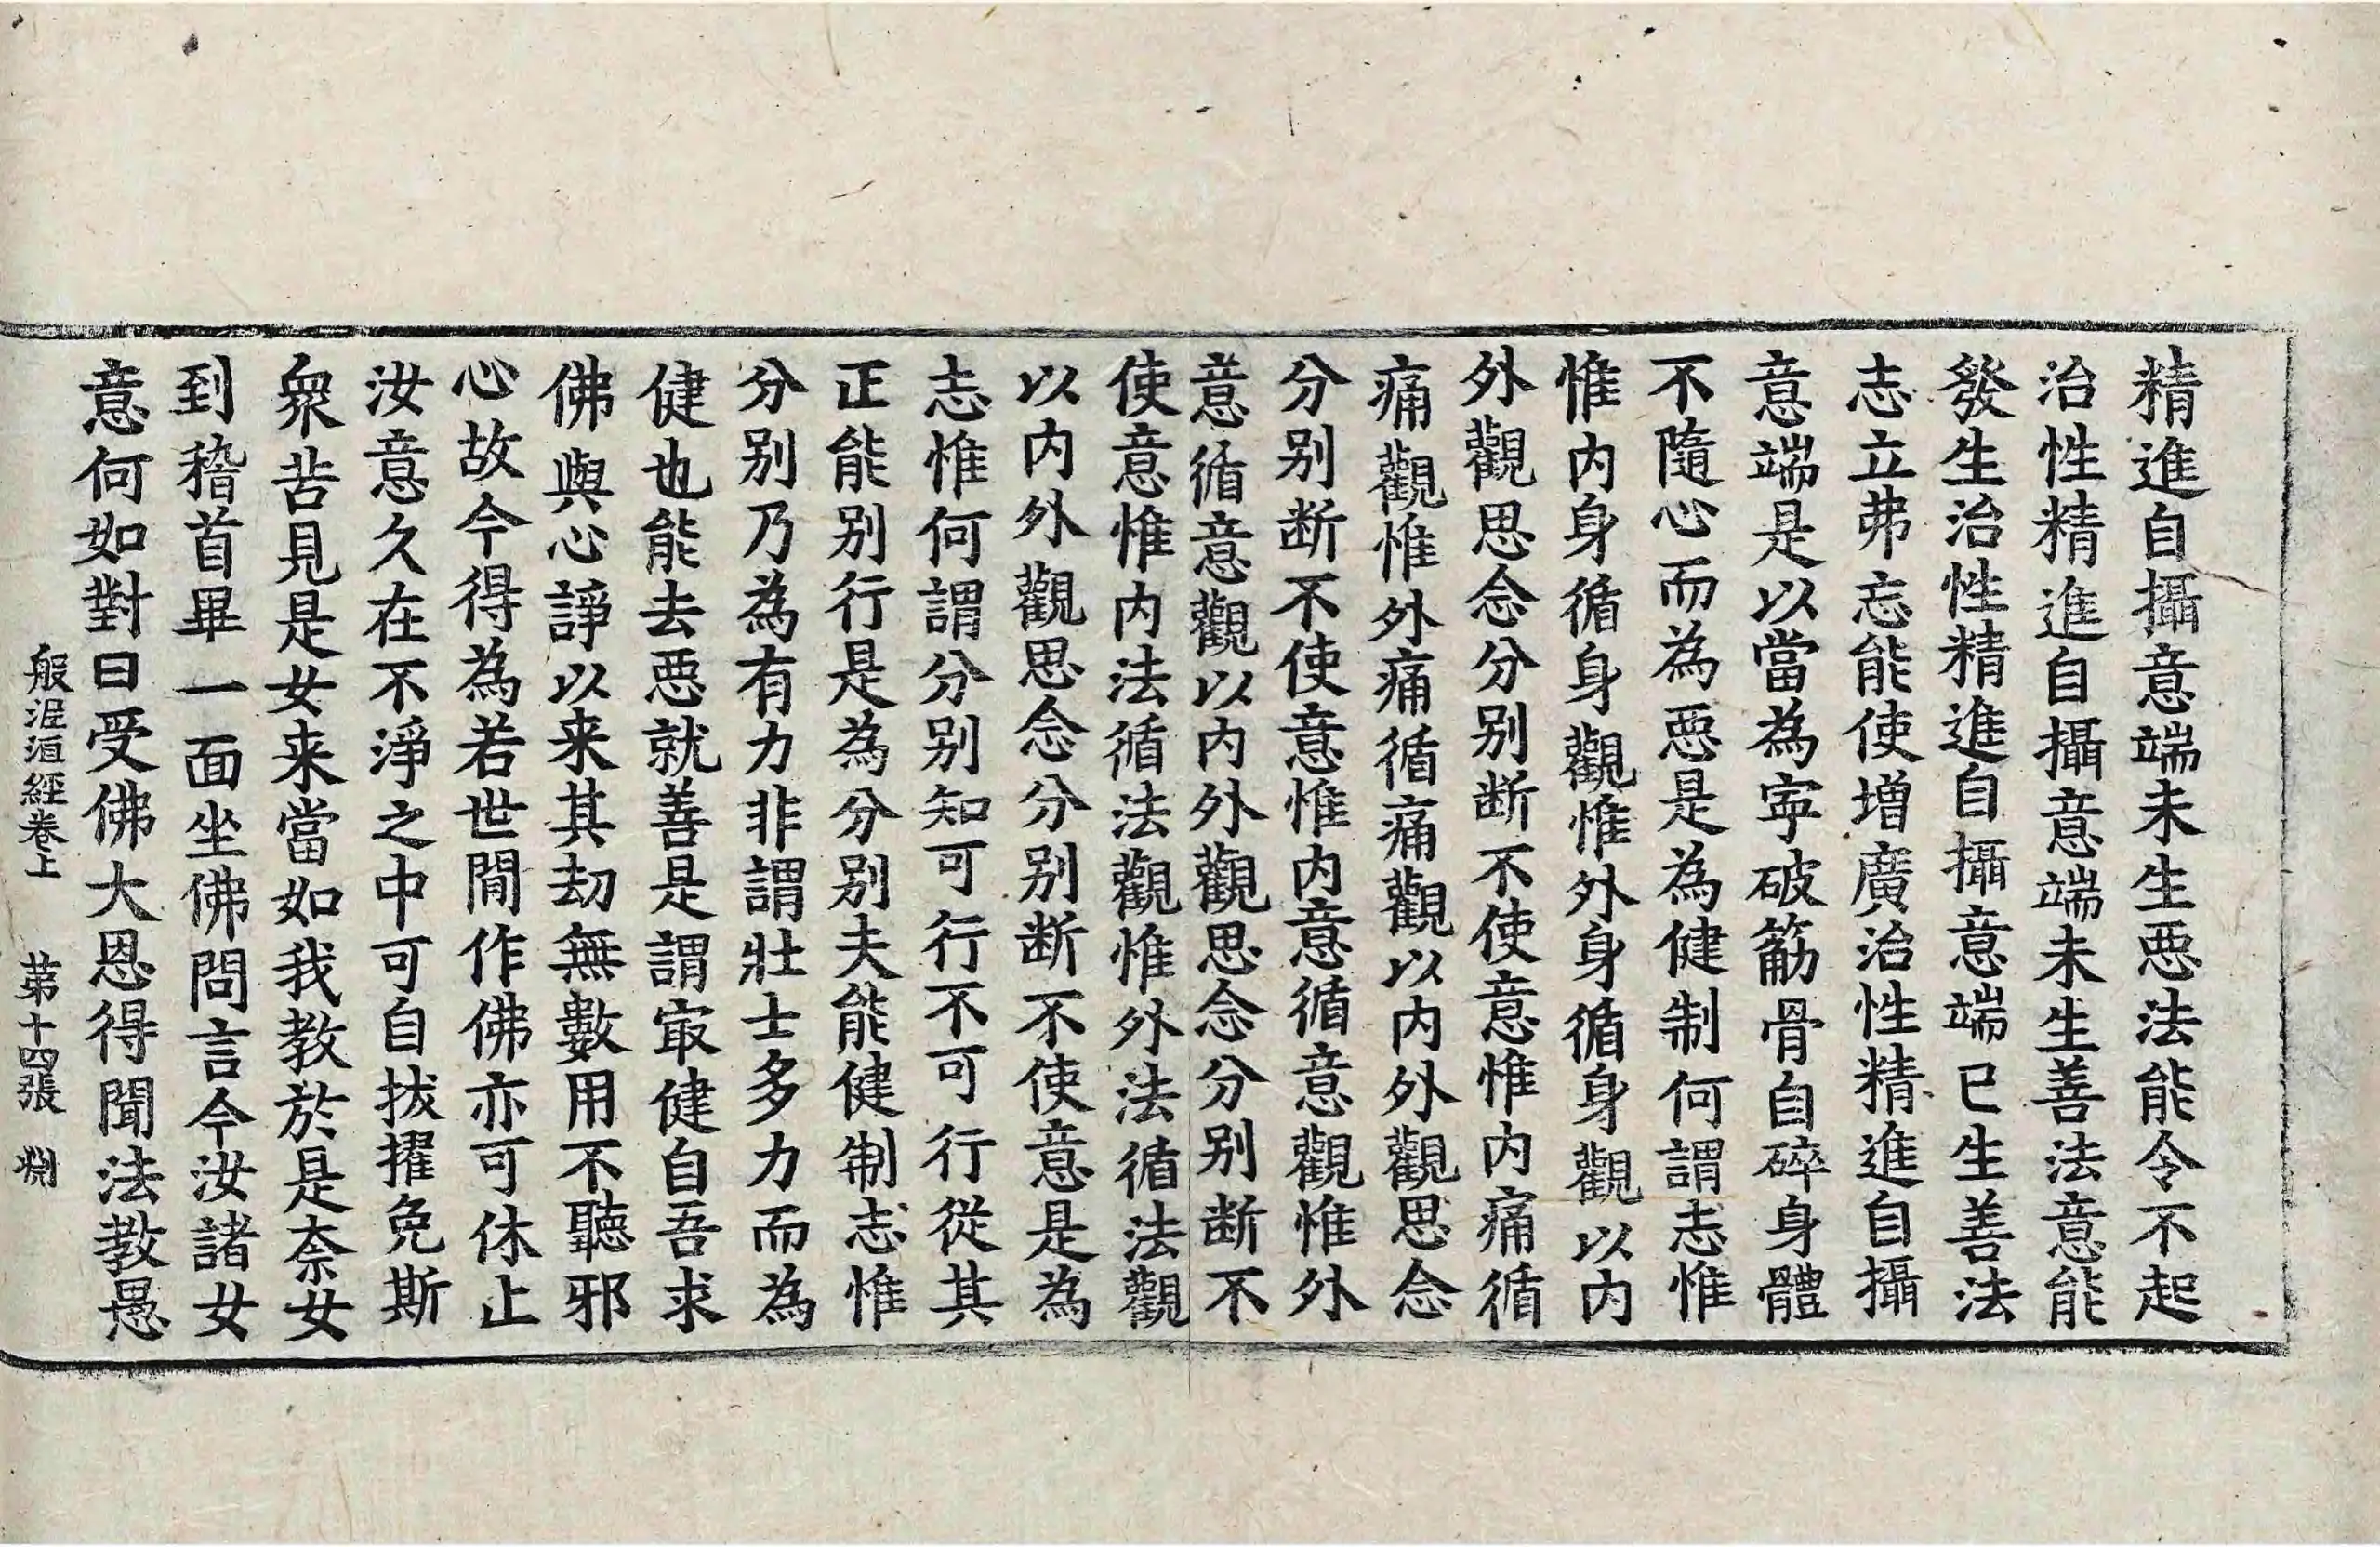 精進自攝意端未生惡法能令不起
治性精進自攝意端未生善法意能
發生治性精進自攝意端已生善法
志立弗忘能使增廣治性精進自攝
意端是以當為寕破筋骨自碎身體
不隨心而為惡是為健制何謂志惟
惟内身循身觀惟外身循身觀以内
外觀思念分别断不使意惟内痛循
痛觀惟外痛循痛觀以内外觀思念
分别断不使意惟内意循意觀惟外
意循意觀以内外觀思念分别断不
使意惟内法循法觀惟外法循法觀
以内外觀思念分别断不使意是為
志惟何謂分别知可行不可行從其
正能别行是為分别夫能健制志惟
分别乃為有力非謂壯士多力而為
健也能去惡就善是謂㝡健自吾求
佛與心諍以来其劫無數用不聽邪
心故今得為若世間作佛亦可休止
汝意久在不淨之中可自拔擢免斯
衆苦見是女来當如我教於是柰女
到稽首畢一面坐佛問言今汝諸女
意何如對曰受佛大恩得聞法教愚
般泥洹經卷上　第十四張　淵